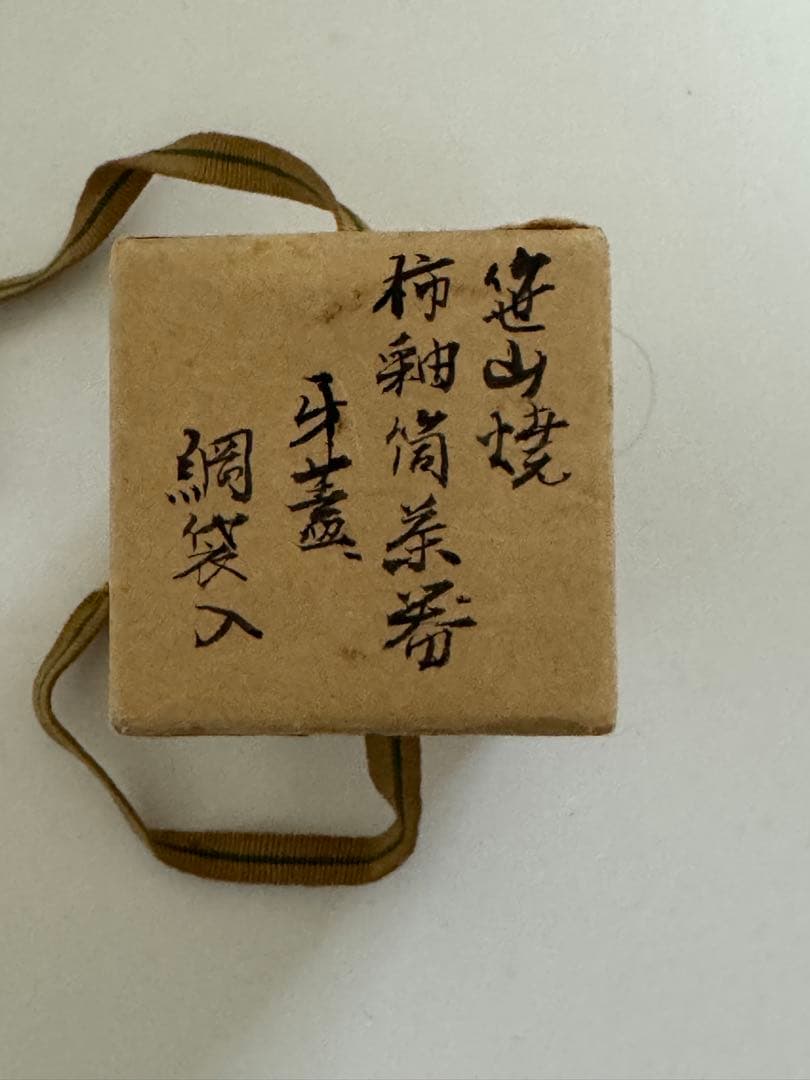 笹山焼
柿釉筒茶器
牙蓋
網袋入